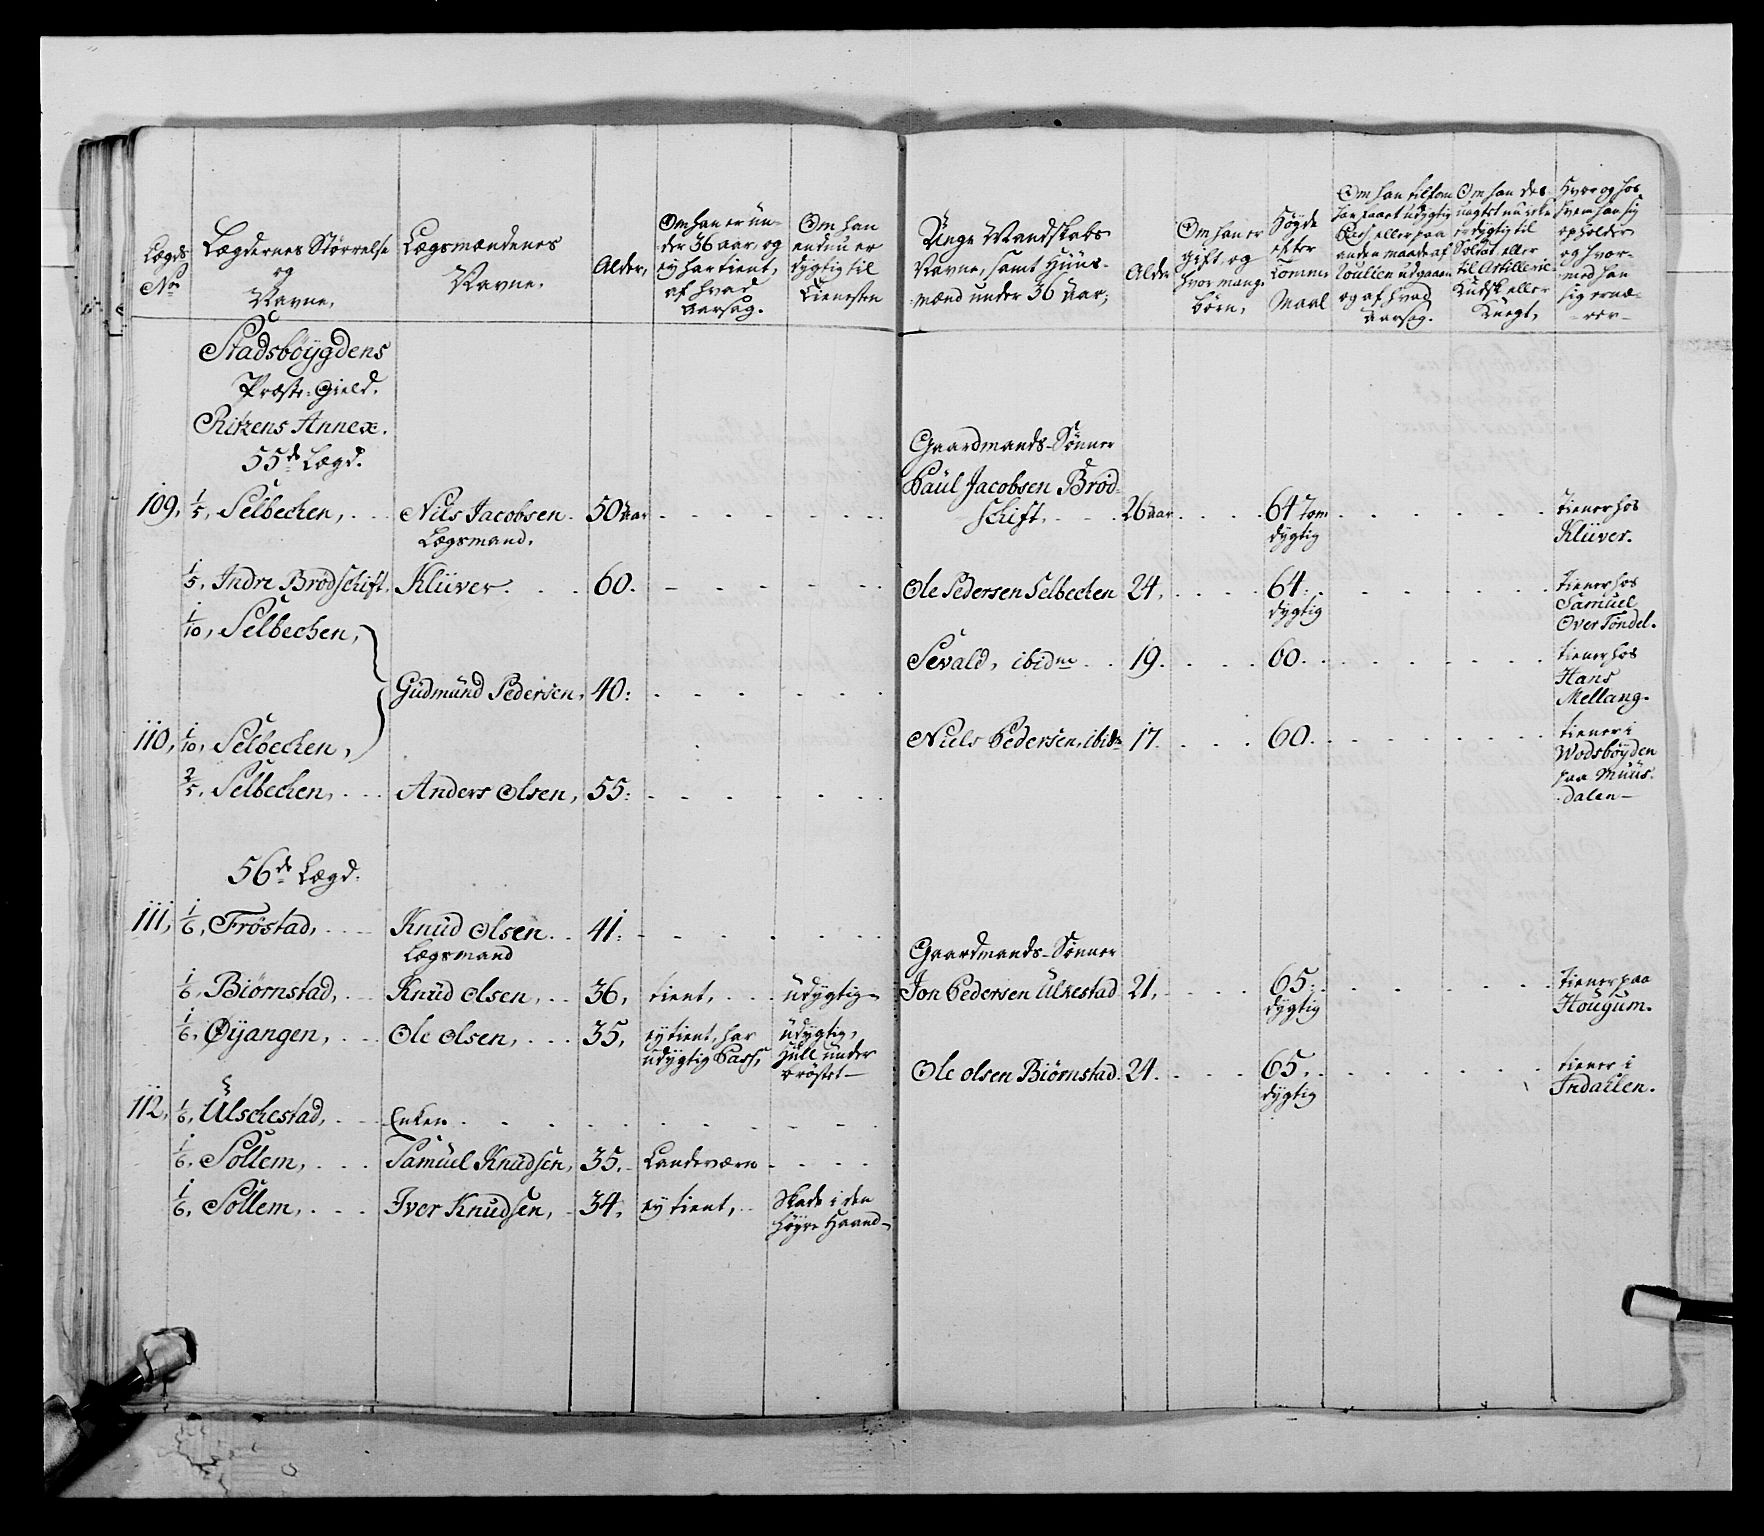 Lægds No
Lægdernes Störrelse og Navne.
Lægsmændenes Navne.
Alder,
Om han er under 36 aar og ey har tient, af hvad Aarsag.
Om han endnu er dygtig til Tienesten
Unge Mandskabs Navne, samt Huus-mænd under 36 Aar;
Alder
Om han er gift og hvor mange börn,
Höyde efter Tomme Maal
Om han tilforn har faaet udygtig Pass eller paa anden maade af Roullen udgaaen og af hvad Aarsag.
Om han des uagtet nu ikke er dygtig til Soldat eller til Artillerie Kudsk eller Knegt,
Hvor og hos hvem han sig opholder og hvor-med han sig ernæ-rer-
Stadsböygdens
Præste-Gield.
Ritzens Annex.
55de Lægd.
Gaardmands-Sönner
109, 1/5, Selbechen, Nils Jacobsen 50 Aar
Lægsmand.
Paul Jacobsen Bröd-
schift 26 aar 64 Tom dygtig tiener hos Klüver.
1/5, Indre Brödschift, Klüver. 60.
Ole Pedersen Selbechen 24, 64. dygtig tiener hos Samuel Over Töndel.
1/10, Selbechen,
Sevald, ibidm 19. 60. tiener hos Hans Mellang.
Gudmund Pedersen, 40:
110, 1/10, Selbechen,
Niels Pedersen, ibidm 17. 60. tiener i Wodsböyden paa Muus-dalen-
2/5, Selbechen, Anders Olsen, 55:
56de Lægd.
111, 1/6, Fröstad, Knud Olsen 41:
Lægsmand
Gaardmands-Sönner
1/6, Biörnstad, Knud Olsen, 36, tient, udygtig-
Jon Pedersen Ulkestad 21, 65: dygtig tiener paa Hougum.
1/6, Øyangen, Ole Olsen, 35, ey tient, har udygtig Pass, udygtig, Hull under bröstet-
Ole Olsen Biörnstad 24. 65. dygtig tiener i Indahlen.
112, 1/6, Ulschestad, Enken
1/6, Sollem, Samuel Knudsen, 35, Landeværn
1/6, Sollem, Iver Knudsen, 34, ey tient, Skade i den höyre Haand-